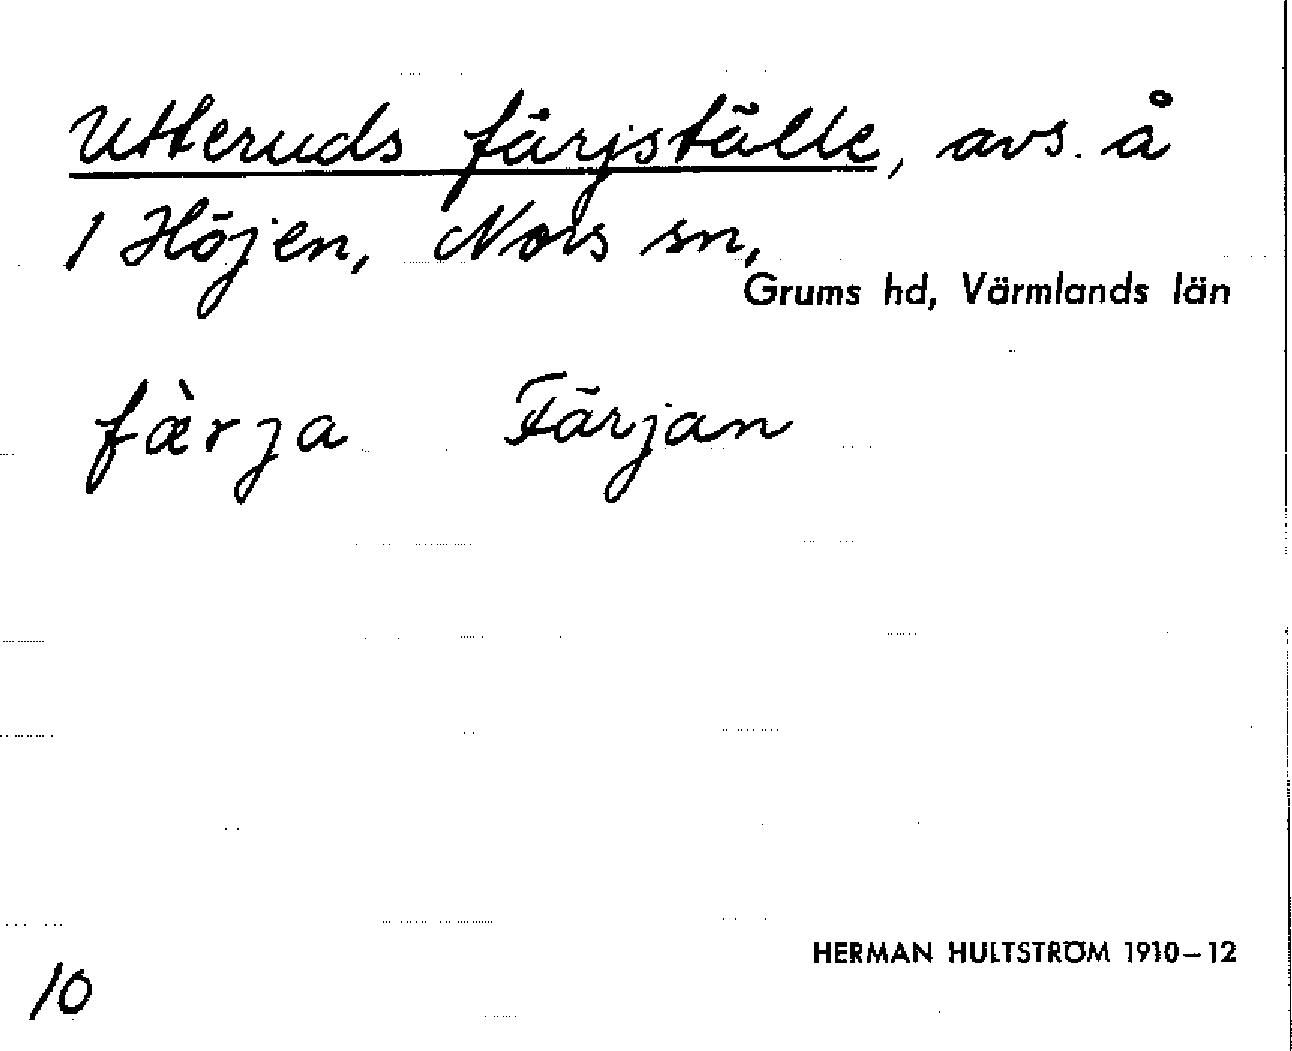 Utteruds färjställe, avs. å
1 Höjen, Nors sn,
Grums hd, Värmlands län
fæ̀rja Färjan
HERMAN HULTSTRÖM 1910–12
10